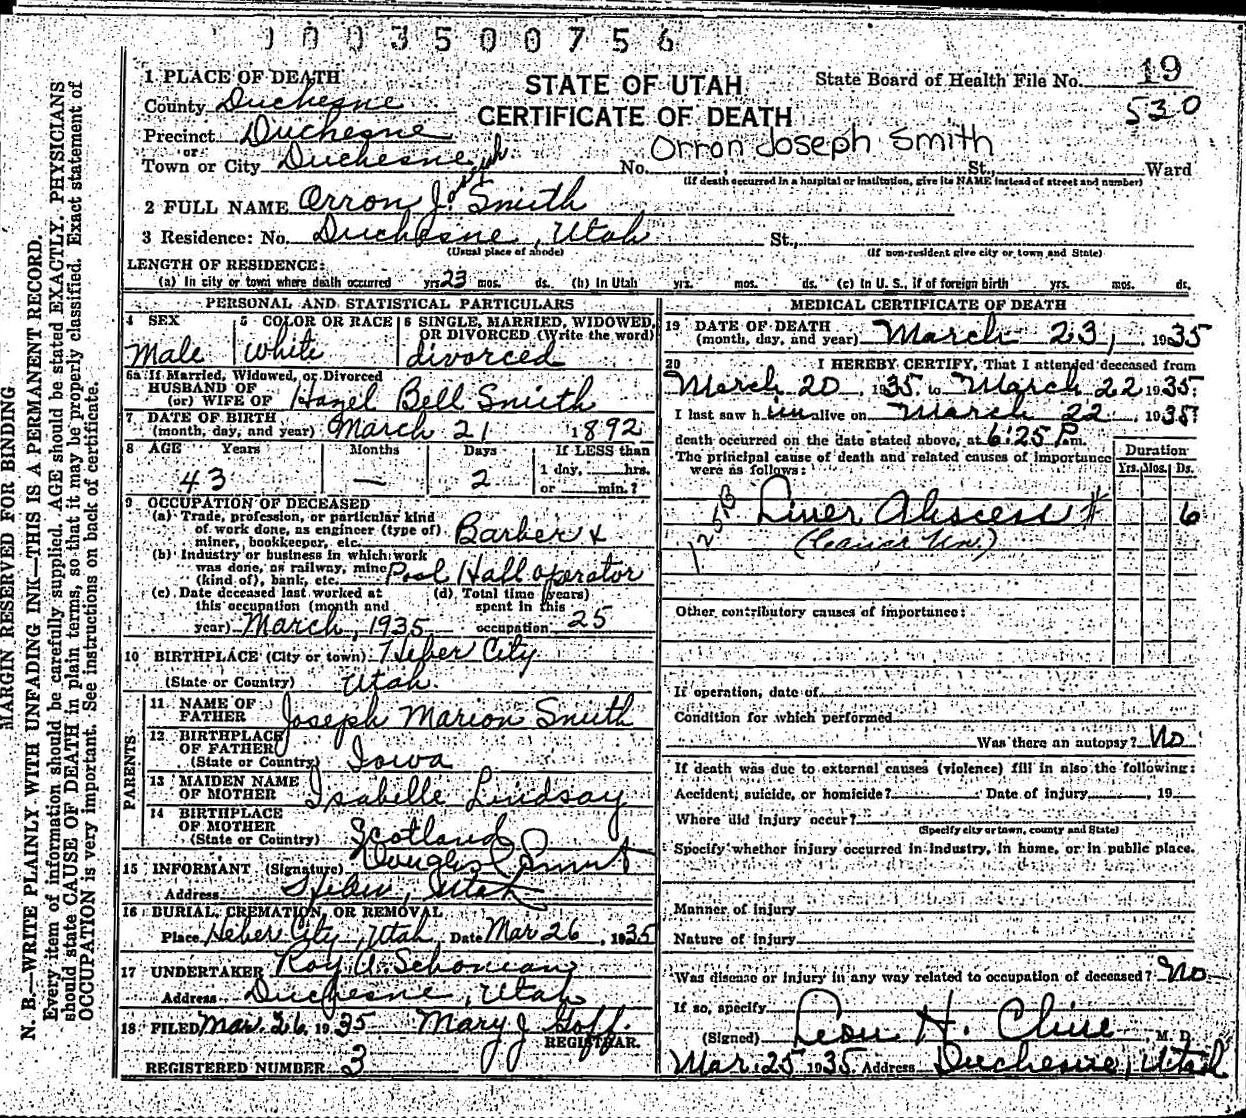 1003500756
1 PLACE OF DEATH
STATE OF UTAH
State Board of Health File No. 19
County Duchesne
CERTIFICATE OF DEATH
530
Precinct Duchesne
or
Orron Joseph Smith
Town or City Duchesne
No. St., Ward
(If death occurred in a hospital or institution, give its NAME instead of street and number)
2 FULL NAME Orron J. Smith
3 Residence: No. Duchesne, Utah St.,
(Usual place of abode) (If non-resident give city or town and State)
LENGTH OF RESIDENCE:
(a) In city or town where death occurred yrs. 23 mos. ds. (b) In Utah yrs. mos. ds. (c) In U. S., if of foreign birth yrs. mos. ds.
PERSONAL AND STATISTICAL PARTICULARS
4 SEX 5 COLOR OR RACE 6 SINGLE, MARRIED, WIDOWED,
OR DIVORCED (Write the word)
Male White divorced
6a If Married, Widowed, or Divorced
HUSBAND OF
(or) WIFE OF Hazel Bell Smith
7 DATE OF BIRTH
(month, day, and year) March 21 1892
8 AGE Years Months Days If LESS than
1 day, hrs.
43 — 2 or min.?
9 OCCUPATION OF DECEASED
(a) Trade, profession, or particular kind
of work done, as engineer (type of)
miner, bookkeeper, etc. Barber &
(b) Industry or business in which work
was done, as railway, mine
(kind of), bank, etc. Pool Hall operator
(c) Date deceased last worked at (d) Total time (years)
this occupation (month and spent in this
year) March, 1935 occupation 25
10 BIRTHPLACE (City or town) Heber City
(State or Country) Utah.
PARENTS
11 NAME OF
FATHER Joseph Marion Smith
12 BIRTHPLACE
OF FATHER
(State or Country) Iowa
13 MAIDEN NAME
OF MOTHER Isabelle Lindsay
14 BIRTHPLACE
OF MOTHER
(State or Country) Scotland
15 INFORMANT (Signature) Douglas Smith
Address Heber, Utah
16 BURIAL, CREMATION, OR REMOVAL
Place Heber City, Utah Date Mar 26, 1935
17 UNDERTAKER Roy A. Schonian
Address Duchesne, Utah
18 FILED Mar. 26, 1935 Mary J Goff.
REGISTRAR.
REGISTERED NUMBER 3
MEDICAL CERTIFICATE OF DEATH
19 DATE OF DEATH
(month, day, and year) March 23, 1935
20 I HEREBY CERTIFY, That I attended deceased from
March 20, 1935 to March 22 1935
I last saw him alive on March 22, 1935
death occurred on the date stated above, at 6:25 P.m.
The principal cause of death and related causes of importance
were as follows:
Duration
Yrs. Mos. Ds.
125B Liver Abscess # 6
(Cause Un.)
Other contributory causes of importance:
If operation, date of
Condition for which performed
Was there an autopsy? No
If death was due to external causes (violence) fill in also the following:
Accident, suicide, or homicide? Date of injury , 19
Where did injury occur?
(Specify city or town, county and State)
Specify whether injury occurred in industry, in home, or in public place.
Manner of injury
Nature of injury
Was disease or injury in any way related to occupation of deceased? No
If so, specify
(Signed) Leon H. Cline, M. D.
Mar. 25 1935 Address Duchesne, Utah
MARGIN RESERVED FOR BINDING
N. B.—WRITE PLAINLY WITH UNFADING INK—THIS IS A PERMANENT RECORD.
Every item of information should be carefully supplied. AGE should be stated EXACTLY. PHYSICIANS
should state CAUSE OF DEATH in plain terms, so that it may be properly classified. Exact statement of
OCCUPATION is very important. See instructions on back of certificate.